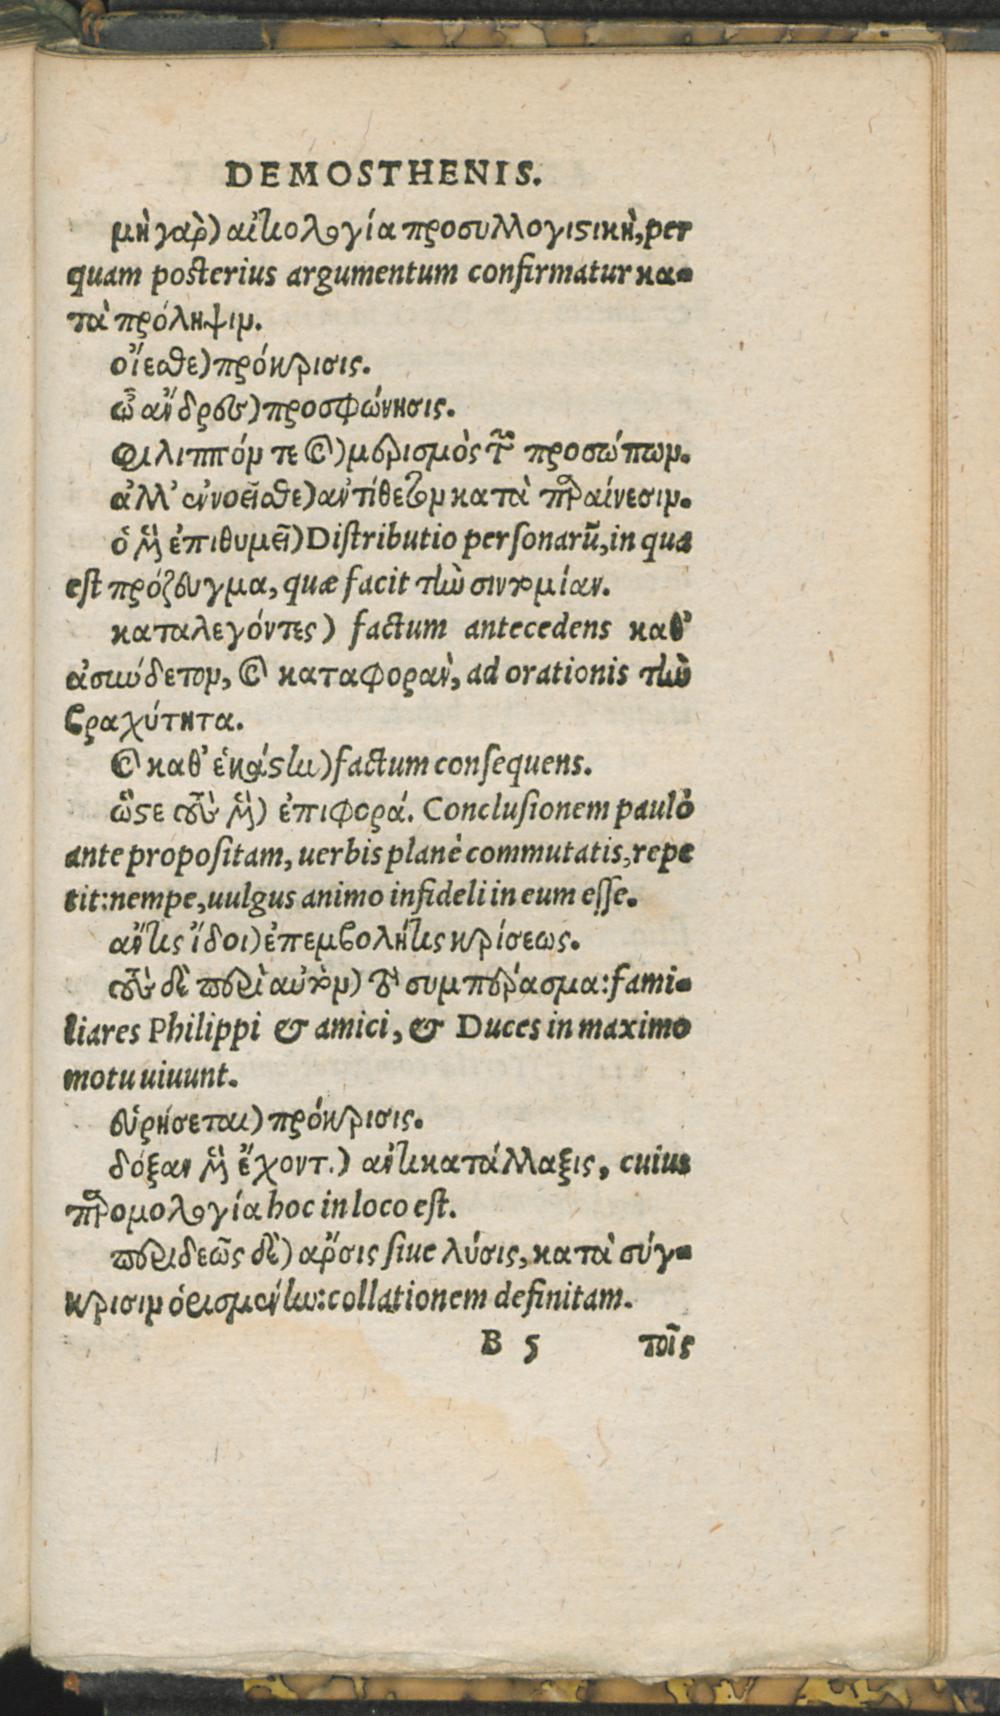 DEMOSTHENIS.
μὴ γαρ) αἰτιολογία προσυλλογιστικὴ, per
quam posterius argumentum confirmatur κα-
τὰ πρόληψιν.
οἴεσθε) πρόκρισις.
ὦ ἄνδρες) προσφώνησις.
Φιλιππόν τε καὶ) μερισμὸς τῶν προσώπων.
ἀλλ' ἐννοεῖσθε) ἀντίθετον κατὰ παραίνεσιν.
ὁ μὲν ἐπιθυμεῖ) Distributio personarũ, in qua
est πρόζευγμα, quæ facit τὴν συντομίαν.
καταλεγόντες) factum antecedens καθ'
ἀσύνδετον, καὶ καταφορὰν, ad orationis τὴν
βραχύτητα.
καὶ καθ' ἑκάστην) factum consequens.
ὥστε ἐκ μὲν) ἐπιφορά. Conclusionem paulò
ante propositam, uerbis planè commutatis, repe
tit: nempe, uulgus animo infideli in eum esse.
ἄν τις ἴδοι) ἐπεμβολή τις κρίσεως.
δὲ περὶ αὐτὸν) τὸ συμπέρασμα: fami-
liares Philippi & amici, & Duces in maximo
motu uiuunt.
εὑρήσεται) πρόκρισις.
δόξαν μὲν ἔχοντ.) ἀντικατάλλαξις, cuius
παρομολογία hoc in loco est.
περιδεῶς δὲ) ἄρσις siue λύσις, κατὰ σύγ-
κρισιν ὁρισμένην: collationem definitam.
B 5 τοῖς